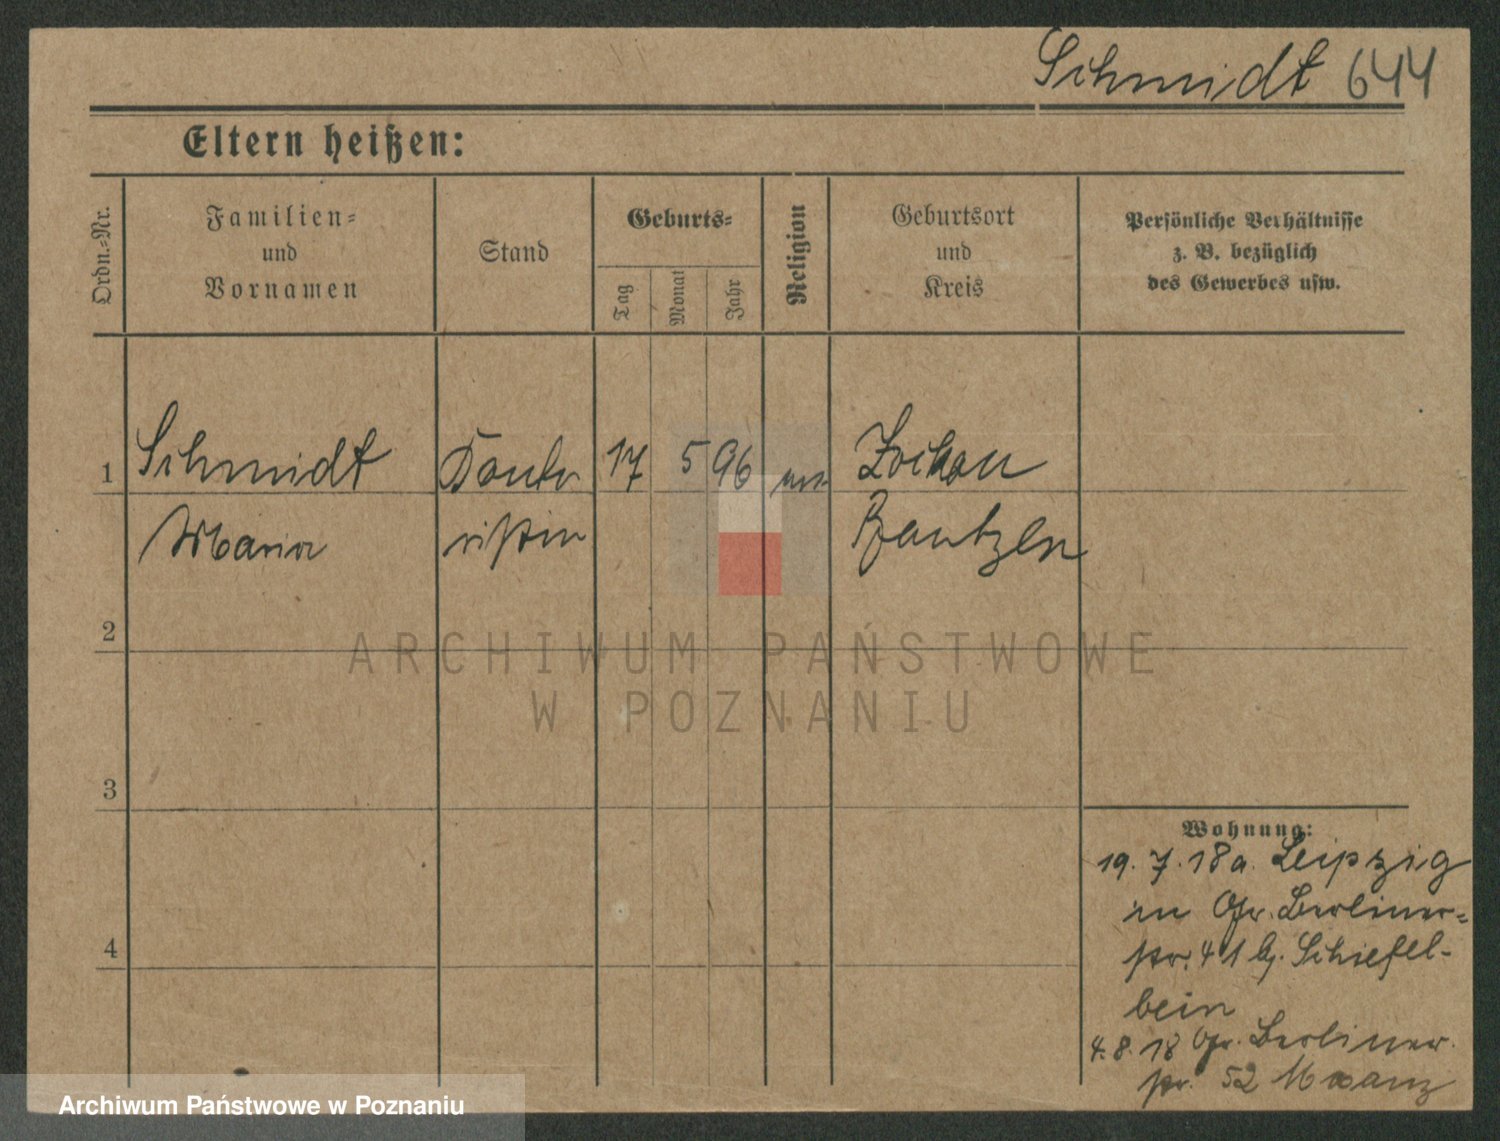 Schmidt 644
Eltern heißen:
Ordn.=Nr.
Familien=
und
Vornamen
Stand
Geburts=
Tag
Monat
Jahr
Religion
Geburtsort
und
Kreis
Persönliche Verhältnisse
z. B. bezüglich
des Gewerbes usw.
1 Schmidt Kontor 17 5 96 Zockau
Maria ristin Bautzen
2
ARCHIWUM PAŃSTWOWE
W POZNANIU
3
Wohnung:
19. 7. 18 a. Leipzig
in Gr. Berliner=
4 str. 41 b. Schiefel-
bein
4. 8. 18 Gr. Berliner
str. 52
Archiwum Państwowe w Poznaniu